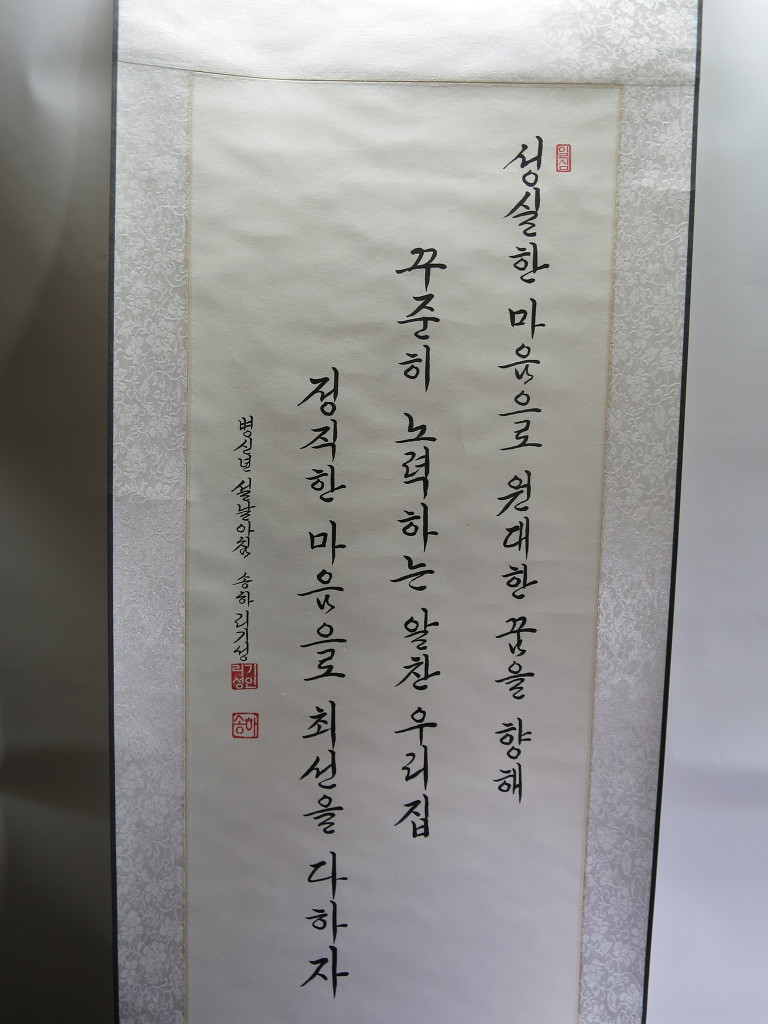 일심
성실한 마음으로 원대한 꿈을 향해
꾸준히 노력하는 알찬 우리집
정직한 마음으로 최선을 다하자
병신년 설날아침 송하 리기성
리기성인
송하